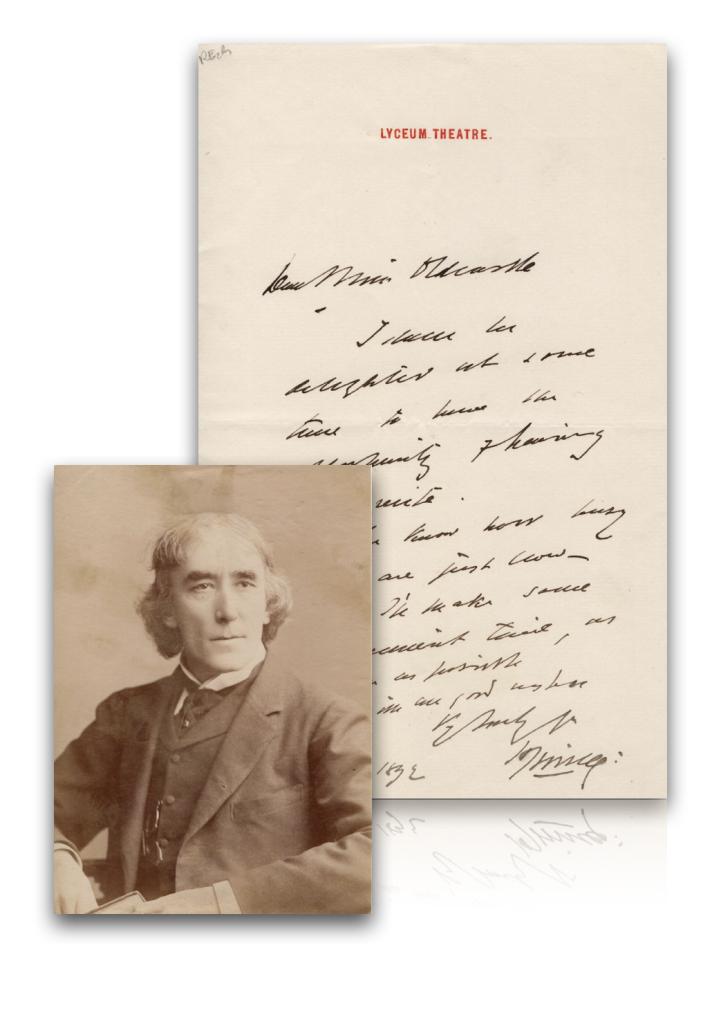 LYCEUM THEATRE.
Dear Miss Oldcastle
I shall be
delighted at some
time to have the
opportunity of hearing
recite.
know how busy
are just now—
I'll make some
convenient time, as
as possible
all good wishes
1892
HIrving: